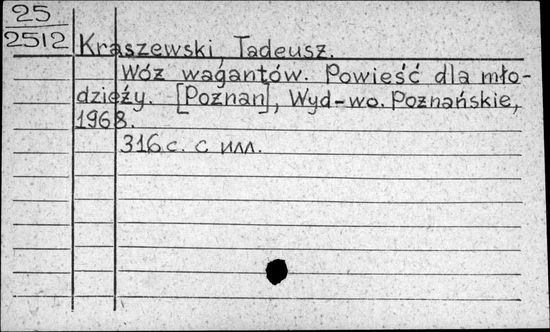 25
2512
Kraszewski, Tadeusz.
Wóz wagantów. Powieść dla mło-
dzieży. [Poznan], Wyd-wo. Poznańskie,
1968.
316 с. с илл.